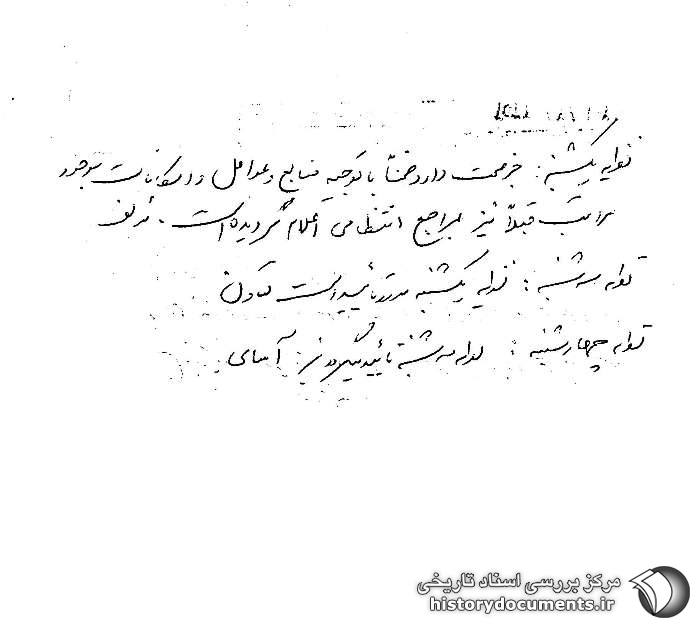 نظریه یکشنبه: خبر صحت دارد ضمناً با توجه منابع و عوامل و امکانات موجود
مراتب قبلاً نیز بمراجع انتظامی اعلام گردیده است.
نظریه سه شنبه: نظریه یکشنبه مورد تأیید است
نظریه چهارشنبه: نظریه سه شنبه تأیید میگردد. آسای
مرکز بررسی اسناد تاریخی
historydocuments.ir